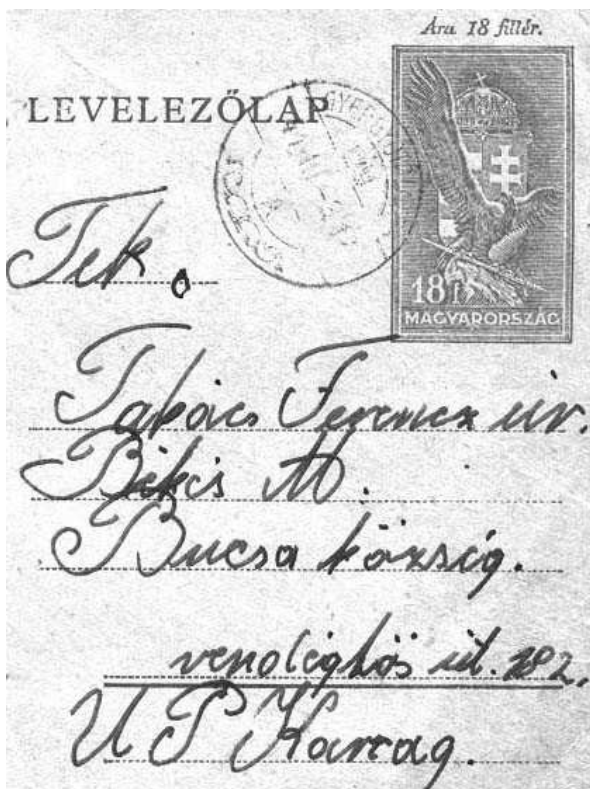 Ára 18 fillér.
LEVELEZŐLAP
18 f
MAGYARORSZÁG
Tek.
Takács Ferencz úr.
Békés M.
Bucsa község.
vendéglős út. 182.
U P Karcag.